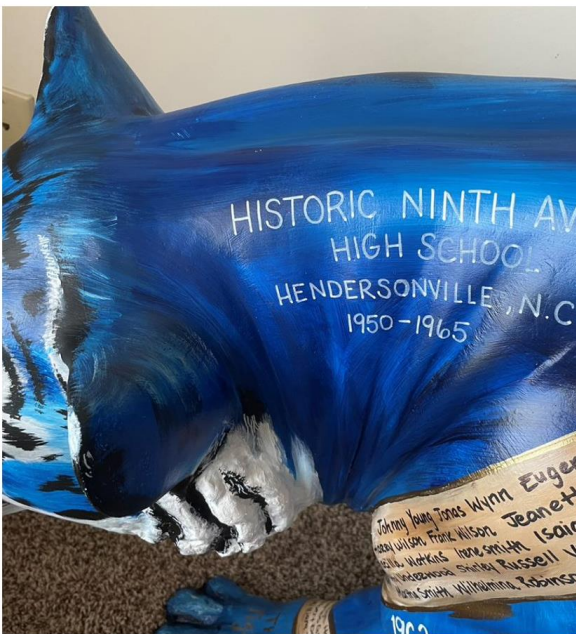 HISTORIC NINTH AV
HIGH SCHOOL
HENDERSONVILLE, N.C
1950-1965
Johnny Young Jonas Wynn Eugen
Wilson Frank Wilson Jeanett
Watkins Irene Smith Isaia
Underwood Shirley Russell
Martha Smith Wilhelmina Robinso
1962